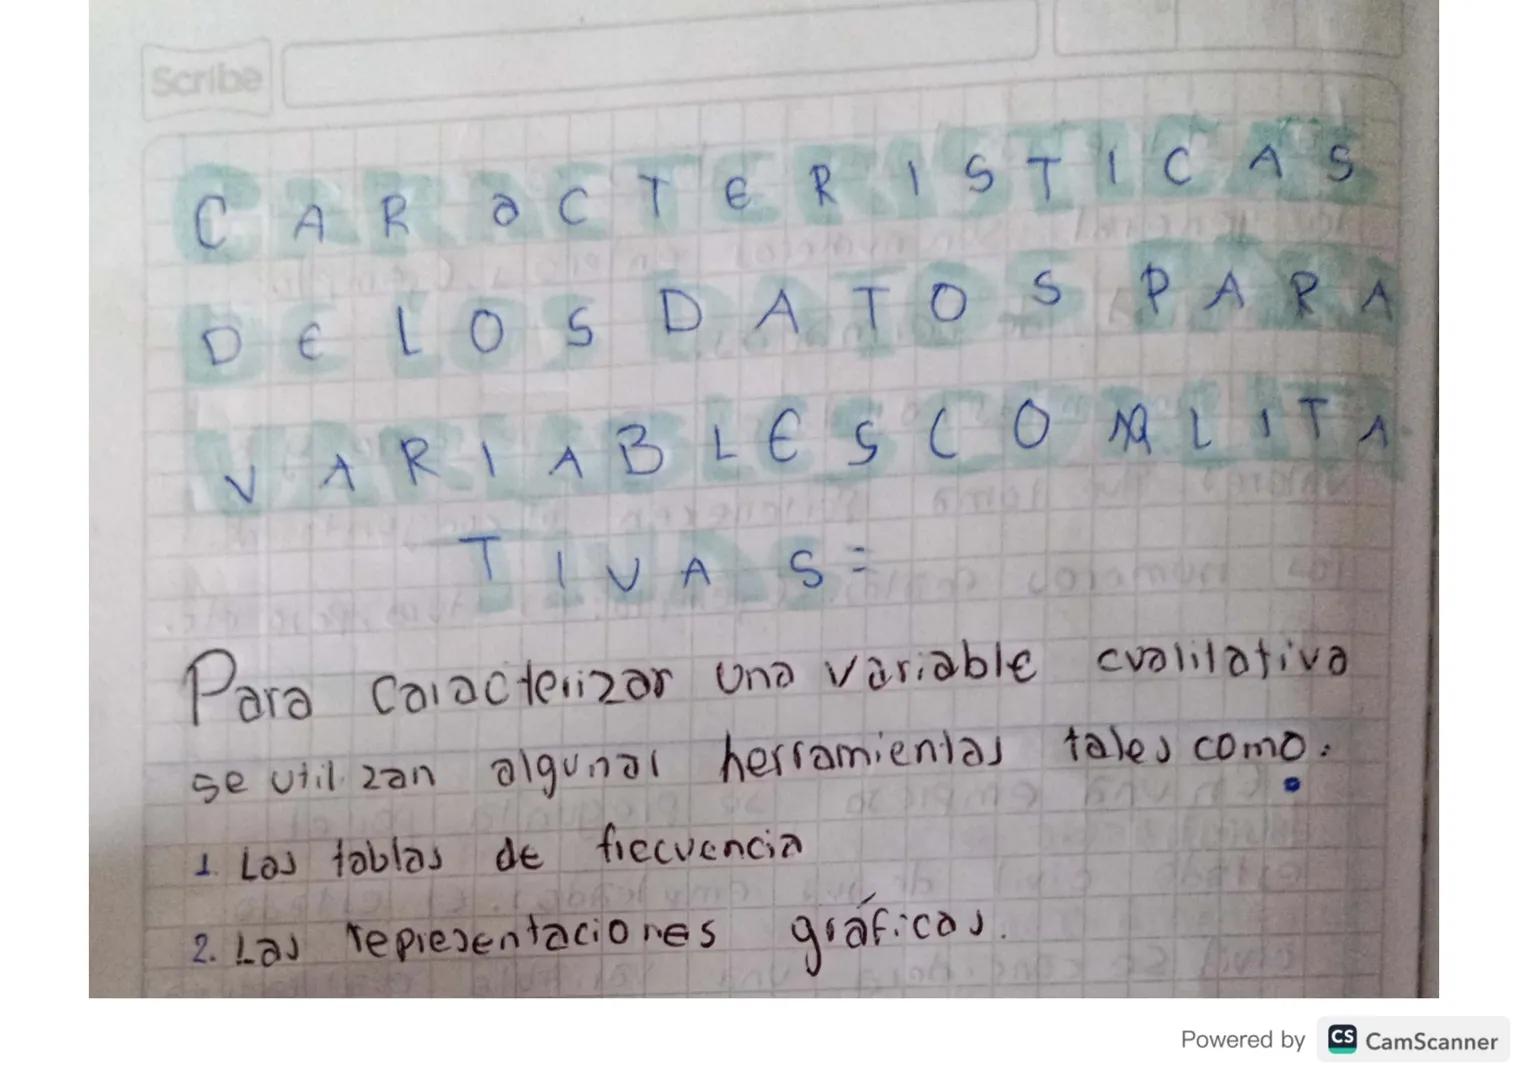 Scribe
CARACTERISTICAS
DE LOS DATOS PARA
VARIABLES
TIVAS =
Para caracterizar una variable cualitativa
se utilizan algunas herramientas tales como:
1. Las tablas de frecuencia
2. Las representaciones gráficas.
Powered by CS CamScanner